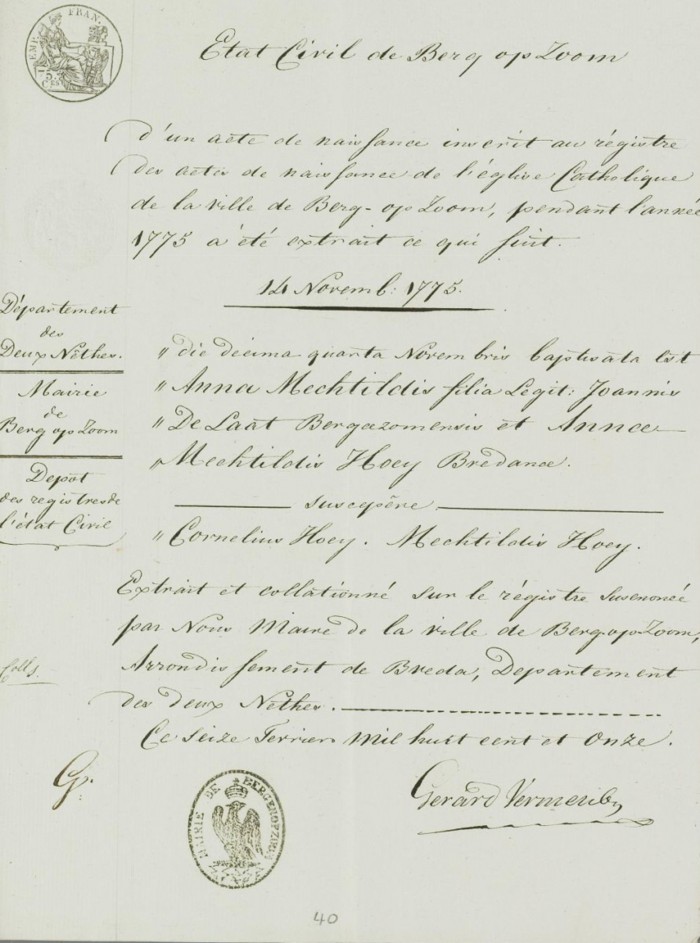 EMP. FRAN.
Etat Civil de Berg op Zoom
d'un acte de naissance inscrit au régistre
des actes de naissance de l'église Catholique
de la ville de Berg-op Zoom, pendant l'année
1775 a été extrait ce qui suit.
14 Novemb: 1775.
Département
des
Deux Nèthes.
Mairie
de
Berg op Zoom
Depôt
des registres de
l'état Civil
" die decima quarta Novembris baptisata est
" Anna Mechtildis filia Legit: Joannis
" De Laat Bergazomensis et Annae
" Mechtildis Hoey Bredanae.
suscepêre
" Cornelius Hoey. Mechtildis Hoey.
Extrait et collationné sur le régistre susenoncé
par Nous Maire de la ville de Berg op Zoom,
Arrondissement de Breda, Departement
des deux Nèthes.
Ce seize fevrier mil huit cent et Onze.
G.
Gerard
MAIRIE DE BERGENOPZOOM
40